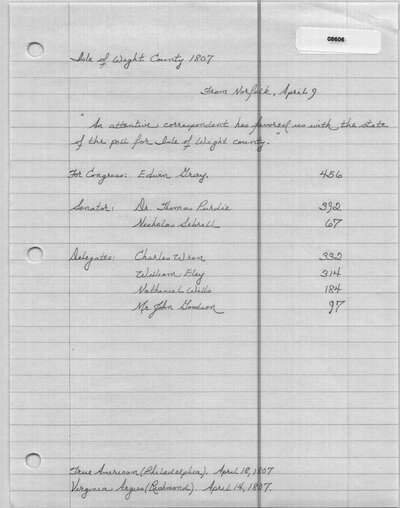 08606
Isle of Wight County 1807
From Norfolk, April 9
"An attentive correspondent has favored us with the state
of the poll for Isle of Wight county."
For Congress: Edwin Gray, 456
Senator: Dr. Thomas Purdie 392
Nicholas Sebrell 67
Delegates: Charles Wren 332
William Eley 314
Nathaniel Wills 184
Mr. John Goodson 97
True American (Philadelphia). April 18, 1807
Virginia Argus (Richmond). April 14, 1807.